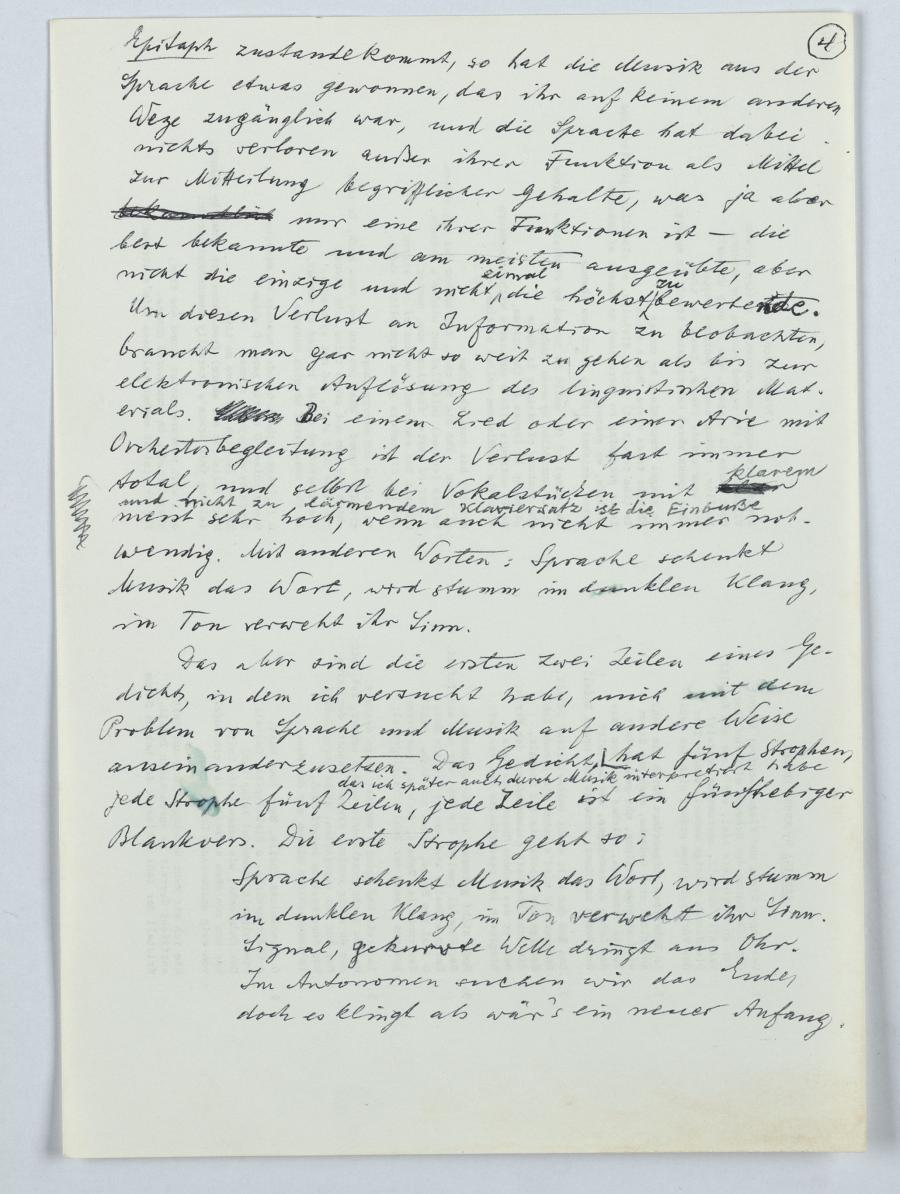 4
Epitaph zustandekommt, so hat die Musik aus der
Sprache etwas gewonnen, das ihr auf keinem anderen
Wege zugänglich war, und die Sprache hat dabei
nichts verloren außer ihrer Funktion als Mittel
zur Mitteilung begrifflicher Gehalte, was ja aber
nur eine ihrer Funktionen ist — die
best bekannte und am meisten ausgeübte, aber
nicht die einzige und nicht einmal die höchst zu bewertende.
Um diesen Verlust an Information zu beobachten,
braucht man gar nicht so weit zu gehen als bis zur
elektronischen Auflösung des linguistischen Mat-
erials. Bei einem Lied oder einer Arie mit
Orchesterbegleitung ist der Verlust fast immer
total, und selbst bei Vokalstücken mit klarem
und nicht zu lärmendem Klaviersatz ist die Einbuße
meist sehr hoch, wenn auch nicht immer not-
wendig. Mit anderen Worten: Sprache schenkt
Musik das Wort, wird stumm im dunklen Klang,
im Ton verweht ihr Sinn.
Das aber sind die ersten zwei Zeilen eines Ge-
dichts, in dem ich versucht habe, mich mit dem
Problem von Sprache und Musik auf andere Weise
auseinanderzusetzen. Das Gedicht, hat fünf Strophen,
das ich später auch durch Musik interpretiert habe
jede Strophe fünf Zeilen, jede Zeile ist ein fünfhebiger
Blankvers. Die erste Strophe geht so:
Sprache schenkt Musik das Wort, wird stumm
im dunklen Klang, im Ton verweht ihr Sinn.
Signal, gekurvte Welle dringt ans Ohr.
Im Autonomen suchen wir das Ende,
doch es klingt als wär's ein neuer Anfang.